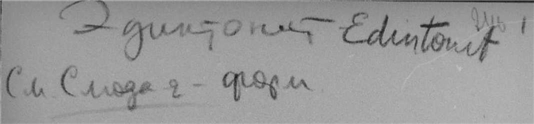 Эдингтонит Edintonit
См Слюда г - форм